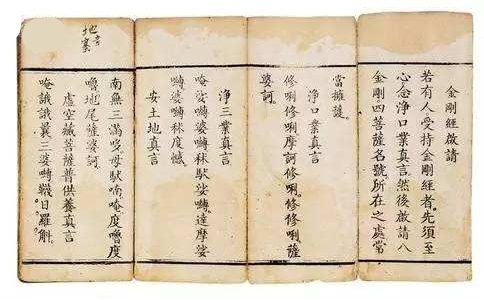 金剛經啟請
若有人受持金剛經者。先須至
心念淨口業真言。然後啟請八
金剛四菩薩名號所在之處常
當擁護。
淨口業真言
修唎修唎摩訶修唎。修修唎薩
婆訶。
淨三業真言
唵娑嚩婆嚩秫馱娑嚩。達摩娑
嚩婆嚩秫度憾
安土地真言
南無三滿哆母馱喃唵度嚕度
嚕地尾薩婆訶
虛空藏菩薩普供養真言
唵誐誐曩三婆嚩韈日羅斛
地